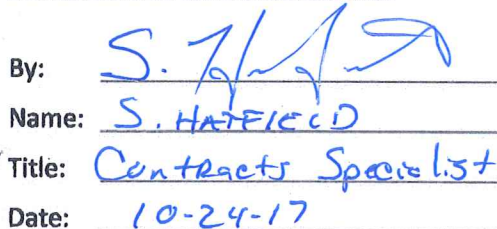 By: S. Hatfield
Name: S. HATFIELD
Title: Contracts Specialist
Date: 10-24-17